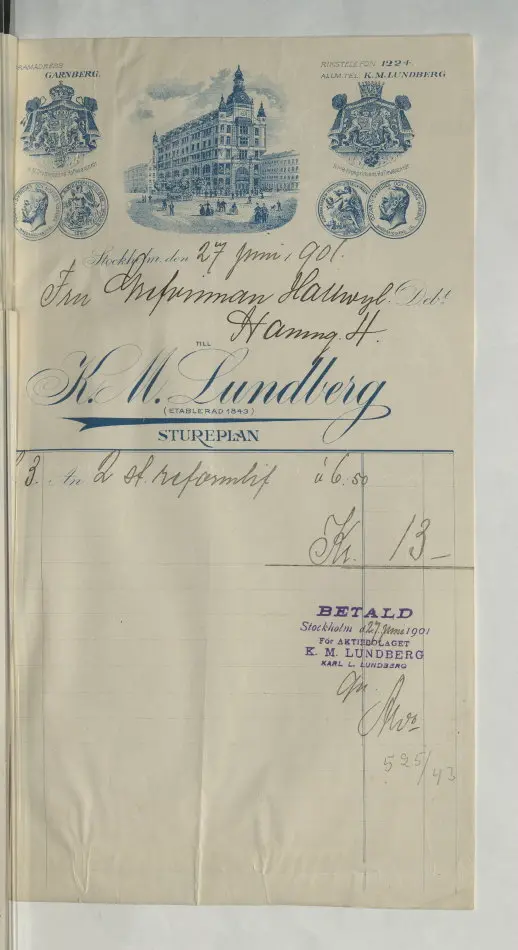 RAMADRESS
GARNBERG.
RIKSTELEFON 1224.
ALLM.TEL. K.M. LUNDBERG
Stockholm den 27 Juni 1901.
Fru Grefvinnan Hallwyl. Debt
Hamng. 4.
TILL
K. M. Lundberg
(ETABLERAD 1843)
STUREPLAN
3. An 2 st. reformlif à 6.50
Kr. 13 –
BETALD
Stockholm d 27 Juni 1901
För AKTIEBOLAGET
K. M. LUNDBERG
KARL L. LUNDBERG
525/43